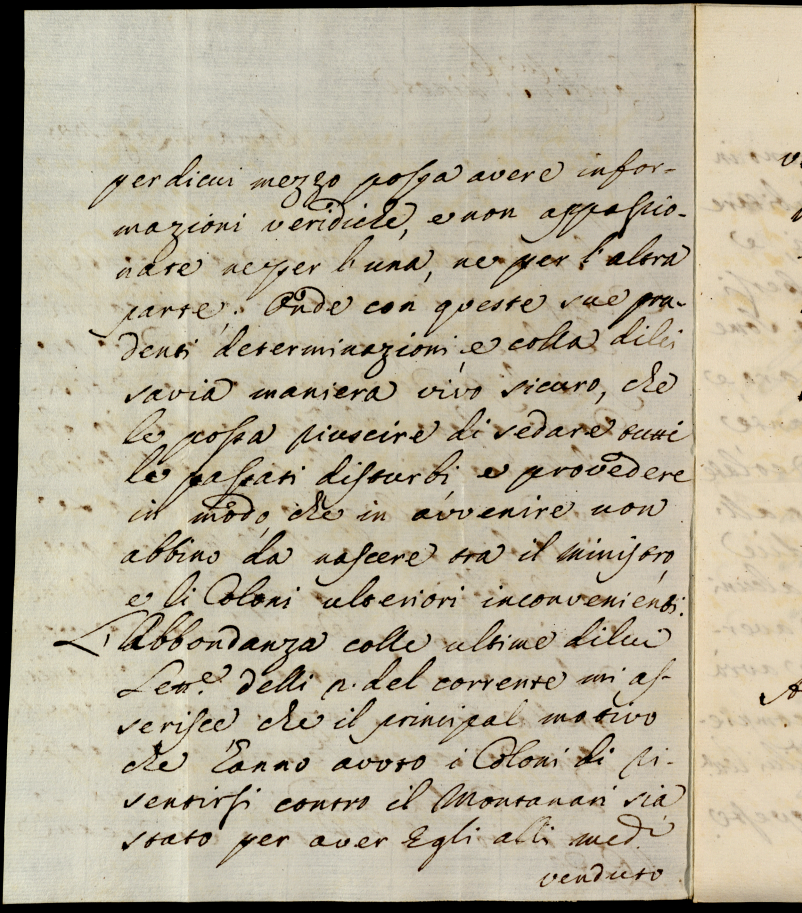 per di cui mezzo possa avere infor-
mazioni veridiche, e non appassio-
nate ne per l'una, ne per l'altra
parte. Onde con queste sue pru-
denti determinazioni, e colla di lei
savia maniera vivo sicuro, che
le possa riuscire di sedare tutti
le passati disturbi e provedere
in modo, che in avvenire non
abbino da nascere tra il Ministro,
e li Coloni ulteriori inconvenienti.
L'Abbondanza colle ultime di lui
Lett.e delli 2. del corrente mi as-
serisce che il principal motivo
che hanno avuto i Coloni di ri-
sentirsi contro il Montanari sia
stato per aver Egli alli med.i
venduto